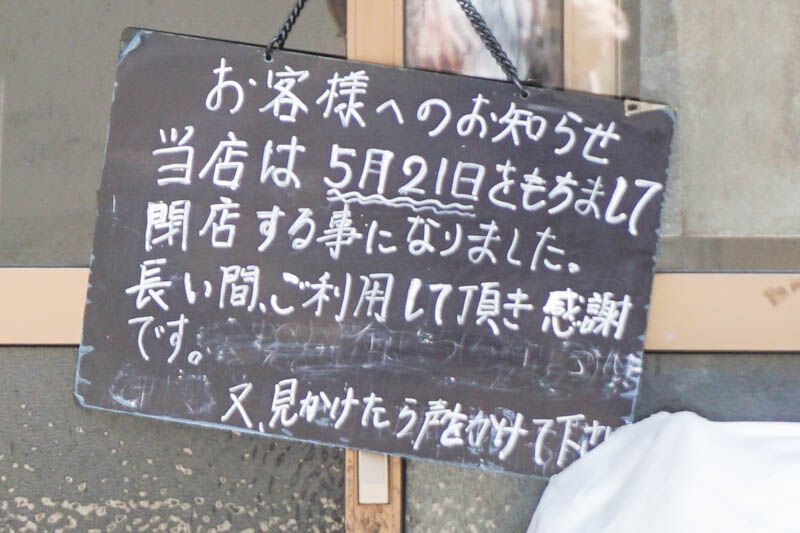 お客様へのお知らせ
当店は5月21日をもちまして
閉店する事になりました。
長い間、ご利用して頂き感謝
です。
又、見かけたら声をかけて下さ